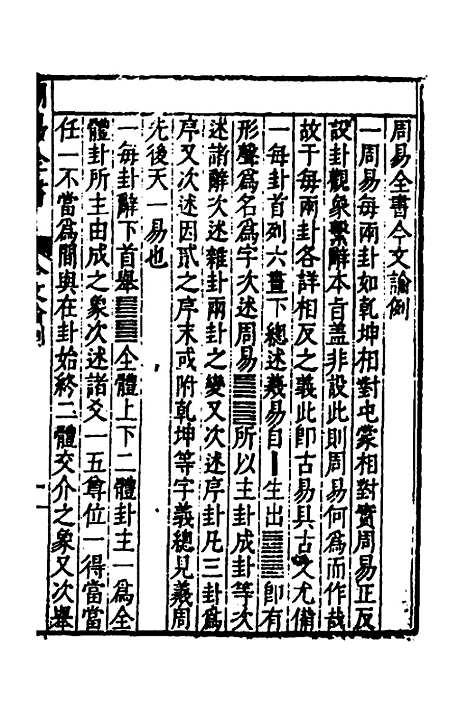 周易全書今文論例
一周易每兩卦如乾坤相對屯蒙相對實周易正反
設卦觀象繫辭本旨盖非設此則周易何為而作哉
故于每兩卦各詳相反之義此卽古易具古文尤備
一每卦首列六畫下總述羲易自丨生出䷀䷁卽有
形聲為名為字次述周易䷀䷁所以主卦成卦等次
述諸辭次述雜卦兩卦之變又次述序卦凡三卦為
序又次述因貳之序末或附乾坤等字義總見羲周
先後天一易也
一每卦辭下首舉䷀䷁全體上下二體卦主一為全
體卦所主由成之象次述諸爻一五尊位一得當當
任一不當為間與在卦始終二體交介之象又次舉